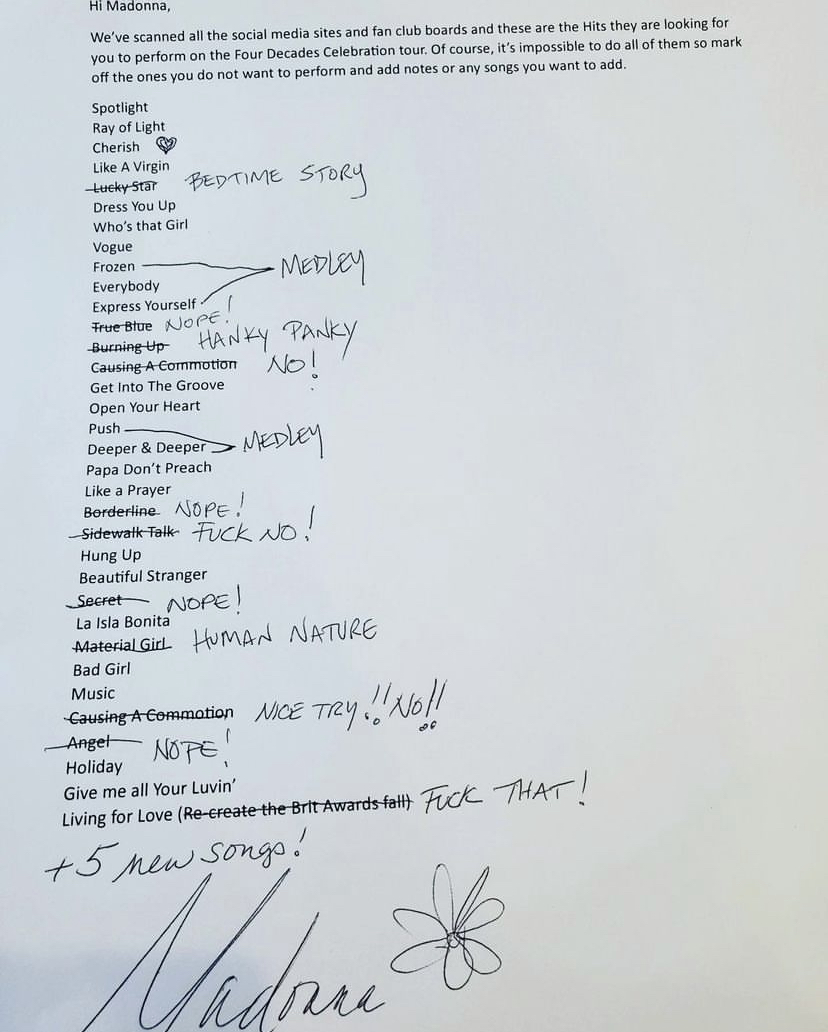 Hi Madonna,
We've scanned all the social media sites and fan club boards and these are the Hits they are looking for
you to perform on the Four Decades Celebration tour. Of course, it's impossible to do all of them so mark
off the ones you do not want to perform and add notes or any songs you want to add.
Spotlight
Ray of Light
Cherish
Like A Virgin
Lucky Star BEDTIME STORY
Dress You Up
Who's that Girl
Vogue
Frozen MEDLEY
Everybody
Express Yourself
True Blue NOPE!
Burning Up HANKY PANKY
Causing A Commotion NO!
Get Into The Groove
Open Your Heart
Push
Deeper & Deeper MEDLEY
Papa Don't Preach
Like a Prayer
Borderline NOPE!
Sidewalk Talk FUCK NO!
Hung Up
Beautiful Stranger
Secret NOPE!
La Isla Bonita
Material Girl HUMAN NATURE
Bad Girl
Music
Causing A Commotion NICE TRY!! NO!!
Angel NOPE!
Holiday
Give me all Your Luvin'
Living for Love (Re-create the Brit Awards fall) FUCK THAT!
+5 new songs!
Madonna